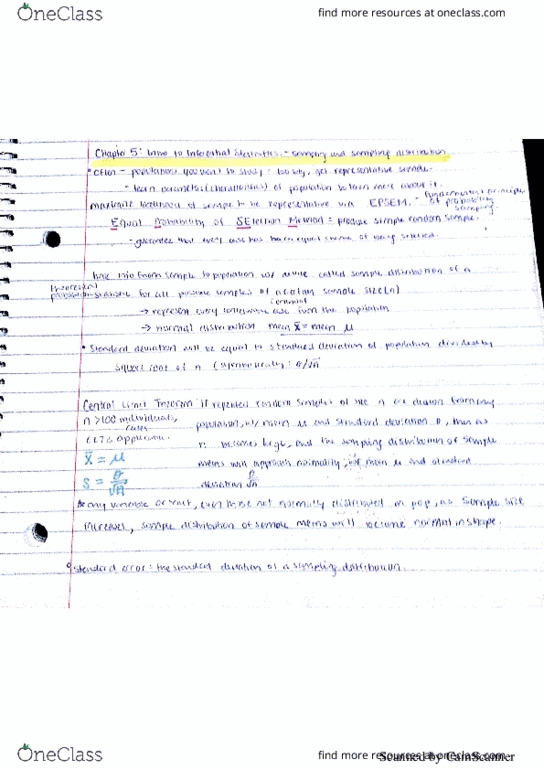 OneClass
find more resources at oneclass.com
Chapter 5: Intro to Inferential Statistics - sampling and sampling distribution
• Often - populations you want to study: too big, get representative sample.
- learn parameters (characteristics) of population to learn more about it.
maximize likelihood of sample to be representative via EPSEM. - fundamental principle of probability sampling
Equal Probability of SElection Method = produce simple random sample.
- guarantee that every case has been equal chance of being selected.
info from sample to population w/ device called sample distribution of a
theoretical
for all possible samples of a certain sample size (n)
constant
→ represent every conceivable case from the population
→ normal distribution mean x̄ = mean μ
• Standard deviation will be equal to standard deviation of population divided by
square root of n σ/√n
Central Limit Theorem: if repeated random samples of size n are drawn from any
n > 100 individuals,
cases
population, w/ mean μ and standard deviation σ, then as
CLT is applicable.
n becomes large, and the sampling distribution of sample
x̄ = μ
means will approach normality, w/ mean μ and standard
S = σ/√n
deviation σ/√n
any variable or trait, even those not normally distributed in pop, as sample size
increases, sample distribution of sample means will become normal in shape.
• Standard error: the standard deviation of a sampling distribution.
OneClass
find more resources at oneclass.com
Scanned by CamScanner